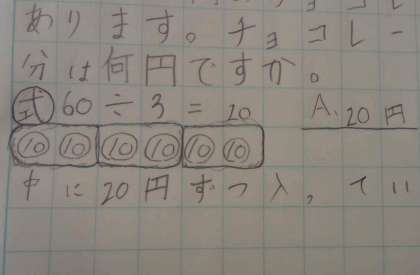 あります。チョコレー
分は何円ですか。
式 60÷3=20 A、20円
⑩⑩⑩⑩⑩⑩
中に20円ずつ入っ、てい